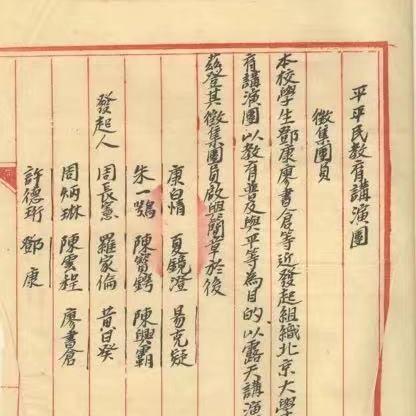 平平民教育講演團
徵集團員
本校學生鄧康廖書倉等近發起組織北京大學
育講演團以教育普及與平等為目的以露天講演
茲登其徵集團員啟與簡章於後
康白情 夏鏡澄 易克疑
朱一鶚 陳寶鍔 陳興霸
發起人 周長憲 羅家倫 昔日癸
周炳琳 陳雲程 廖書倉
許德珩 鄧康